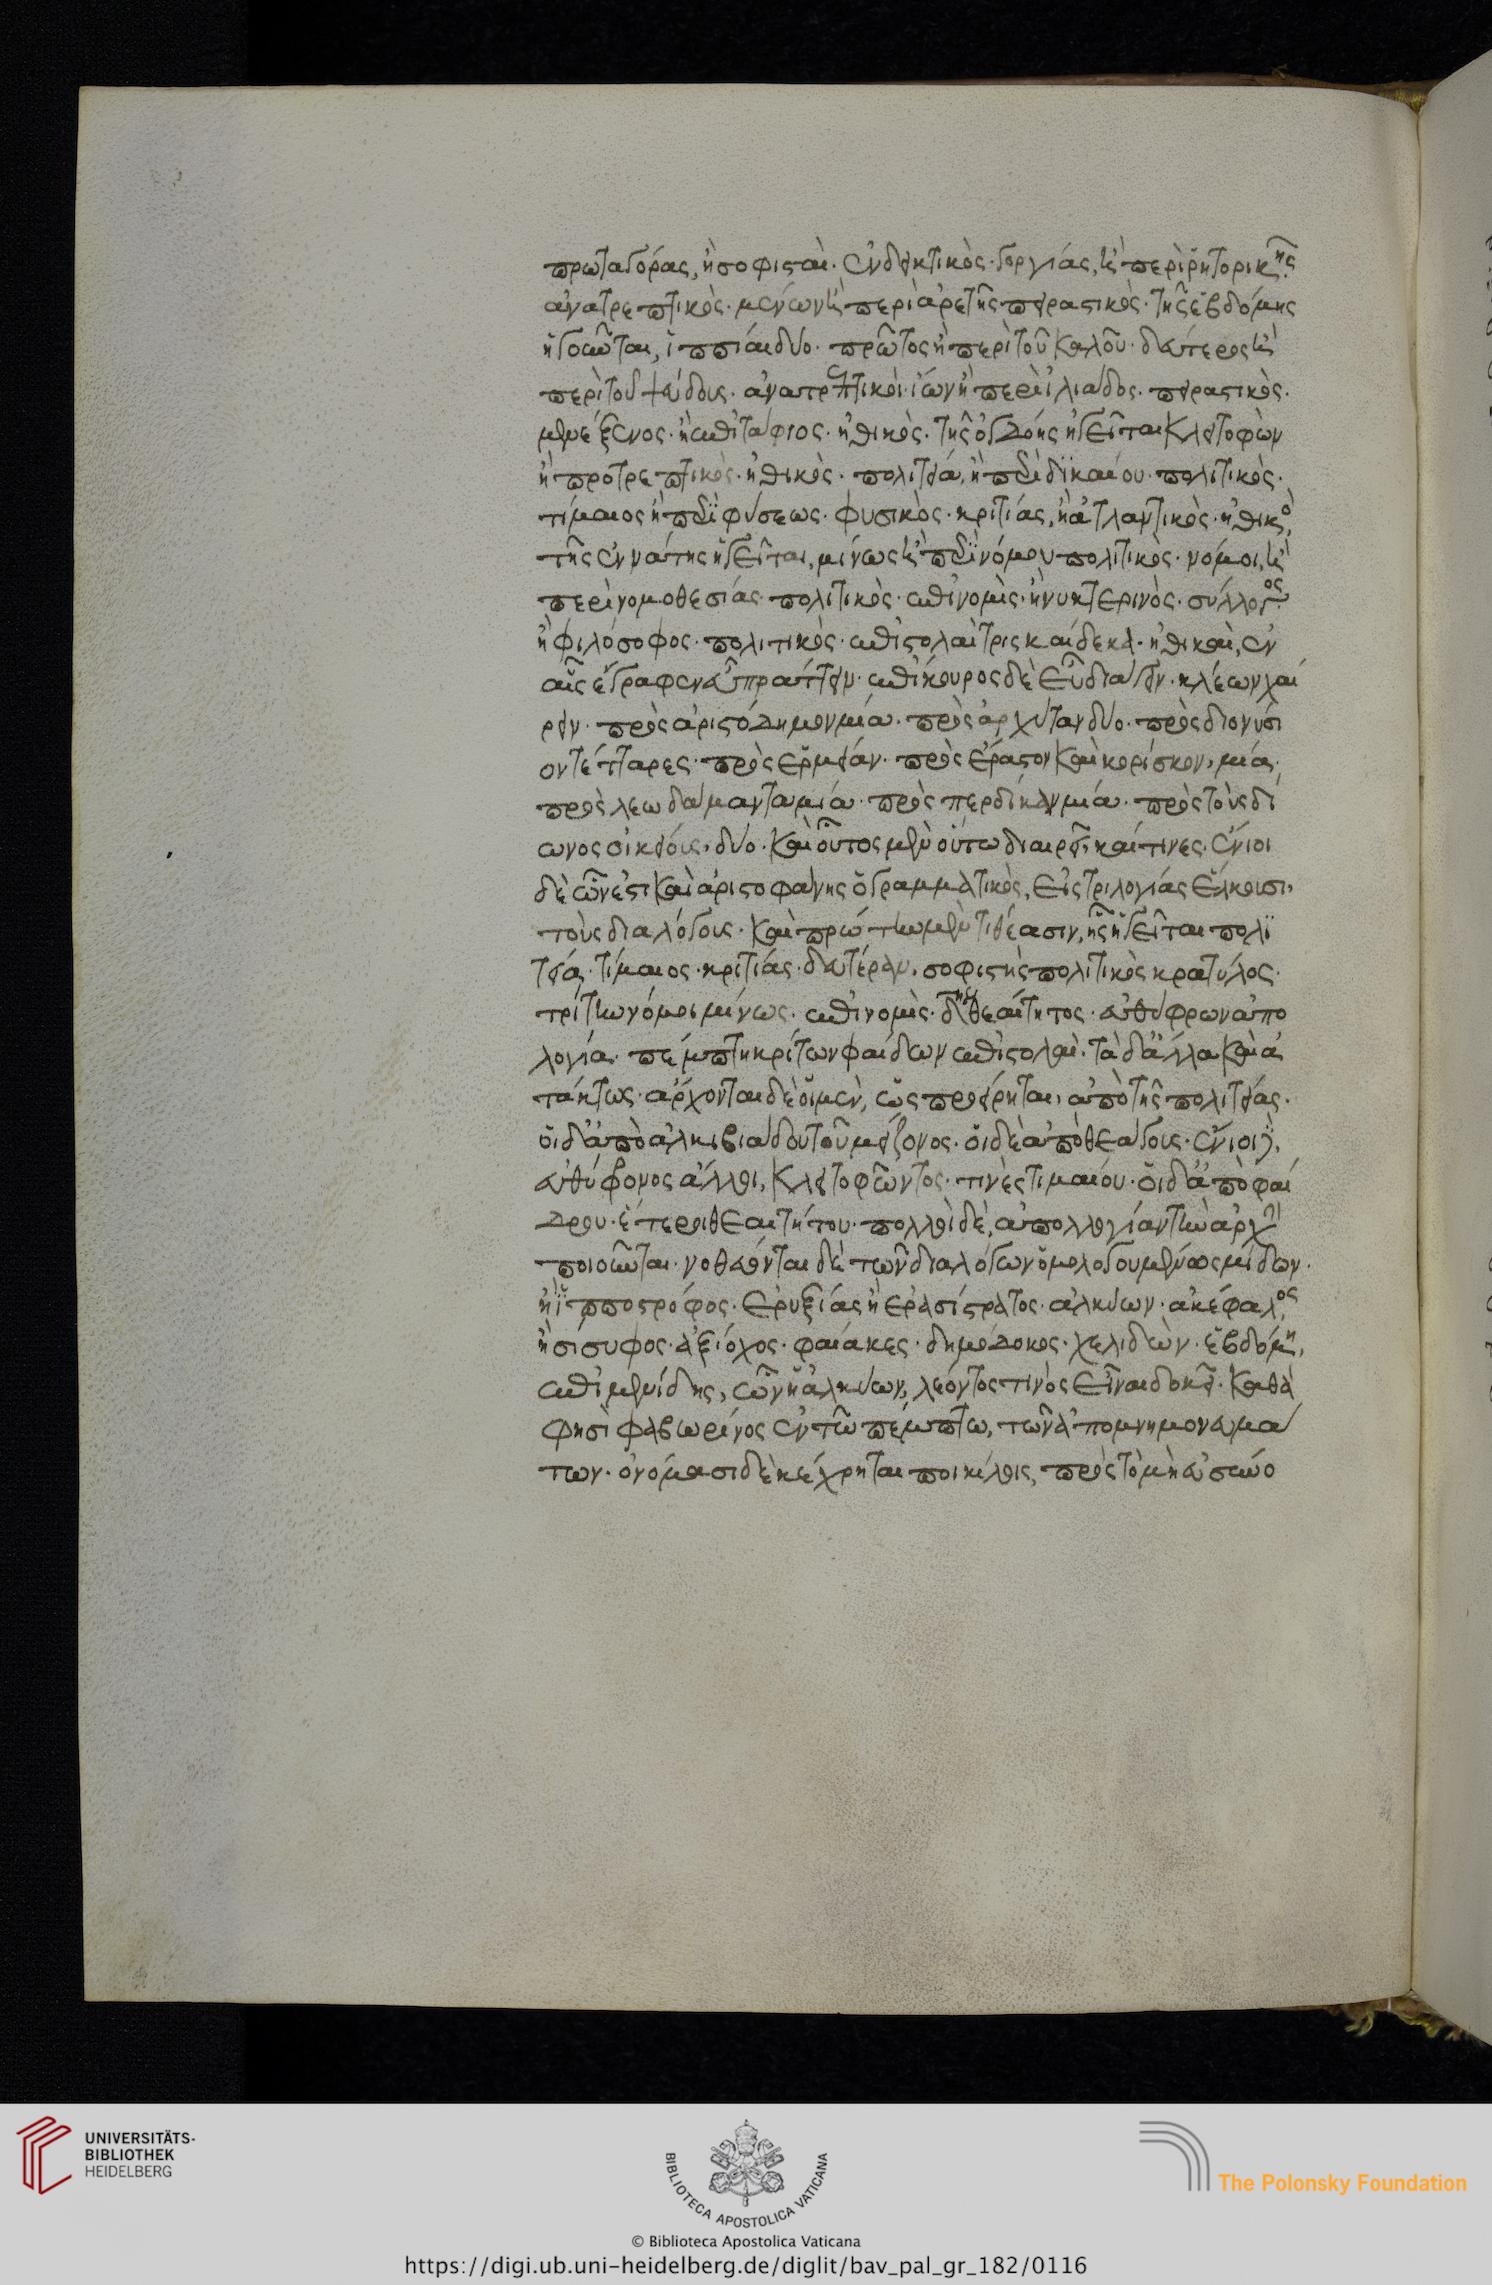 πρωταγόρας, ἢ σοφισταὶ· ἐνδεικτικὸς· γοργίας, ἢ περὶ ῥητορικῆς
ἀνατρεπτικὸς· μενέων ἢ περὶ ἀρετῆς πειραστικὸς· τῆς ἑβδόμης
ἡγοῦνται, ἱππίαι δύο· πρῶτος ἢ περὶ τοῦ καλοῦ· δεύτερος ἢ
περὶ τοῦ ψεύδους· ἀνατρεπτικοὶ· ἰών ἢ περὶ ἰλιάδος· πειραστικὸς·
μενέξενος· ἢ ἐπιτάφιος· ἠθικὸς· τῆς ὀγδόης ἡγεῖται κλειτοφὼν
ἢ προτρεπτικὸς· ἠθικὸς· πολιτεία, ἢ περὶ δικαίου· πολιτικὸς·
τίμαιος ἢ περὶ φύσεως· φυσικὸς· κριτίας, ἢ ἀτλαντικὸς· ἠθικὸ,
τῆς ἐννάτης ἡγεῖται, μίνως ἢ περὶ νόμου πολιτικὸς· νόμοι, ἢ
περὶ νομοθεσίας· πολιτικὸς· ἐπινομὶς· ἢ νυκτερινὸς· σύλλογος
ἢ φιλόσοφος· πολιτικὸς· ἐπιστολαὶ τρισκαίδεκα· ἠθικαὶ, ἐν
αἷς ἔγραφεν εὖ πράττειν· ἐπίκουρος δὲ εὖ διάγειν· κλέων χαί
ρειν· πρὸς ἀριστόδημον μία· πρὸς ἀρχύταν δύο· πρὸς διονύσι
ον τέτταρες· πρὸς ἑρμείαν· πρὸς ἔραστον καὶ κορίσκον, μία·
πρὸς λεωδάμαντα μία· πρὸς περδίκαν μία· πρὸς τοὺς δί
ωνος οἰκείους, δύο· καὶ οὗτος μὲν οὕτω διαιρεῖ, καί τινες· ἔνιοι
δὲ ὧν ἐστι καὶ ἀριστοφάνης ὁ γραμματικὸς, εἰς τριλογίας ἕλκουσι,
τοὺς διαλόγους· καὶ πρώτην μὲν τιθέασιν, ἧς ἡγεῖται πολι
τεία· τίμαιος· κριτίας· δευτέραν, σοφιστὴς πολιτικὸς κρατύλος·
τρίτην νόμοι μίνως· ἐπινομὶς· δτην θεαίτητος· εὐθύφρων ἀπο
λογία· πέμπτη κρίτων φαίδων ἐπιστολαὶ· τὰ δ' ἄλλα καὶ ἀ
τάκτως· ἄρχονται δὲ οἱ μὲν, ὡς προείρηται, ἀπὸ τῆς πολιτείας·
οἱ δ' ἀπὸ ἀλκιβιάδου τοῦ μείζονος· οἱ δὲ ἀπὸ θεάγους· ἔνιοι δὲ,
εὐθύφρονος ἄλλοι, κλειτοφῶντος· τινὲς τιμαίου· οἱ δ' ἀπὸ φαί
δρου· ἕτεροι θεαιτήτου· πολλοὶ δὲ, ἀπολλογίαν τὴν ἀρχὴ
ποιοῦνται· νοθεύονται δὲ τῶν διαλόγων ὁμολογουμένως μίδων·
ἢ ἱπποτρόφος· ἐρυξίας ἢ ἐρασίστρατος· ἀλκύων· ἀκέφαλος,
ἢ σίσυφος· ἀξίοχος· φαίακες· δημόδοκος· χελιδὼν· ἑβδόμη,
ἐπιμενίδης, ὧν ἡ ἀλκύων, λεόντος τινὸς εἶναι δοκεῖ· καθὰ
φησὶ φαβωρίνος ἐν τῷ πέμπτῳ, τῶν ἀπομνημονευμά
των· ὀνόμασι δὲ κέχρηται ποικίλοις, πρὸς τὸ μὴ εὐσύνο
UNIVERSITÄTS-
BIBLIOTHEK
HEIDELBERG
BIBLIOTECA APOSTOLICA VATICANA
The Polonsky Foundation
© Biblioteca Apostolica Vaticana
https://digi.ub.uni-heidelberg.de/diglit/bav_pal_gr_182/0116